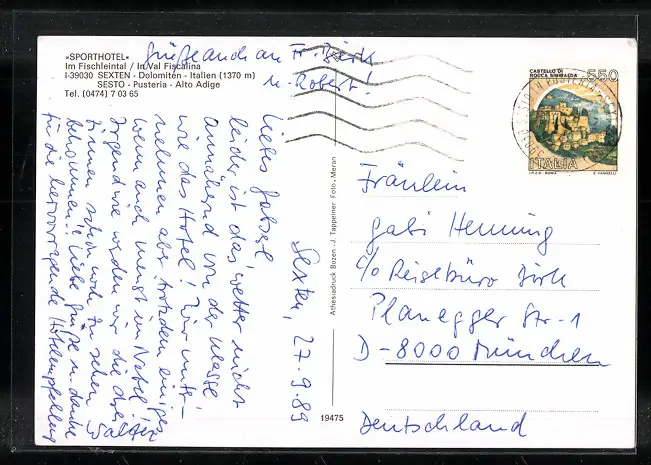 »SPORTHOTEL«
Im Fischleintal / In Val Fiscalina
I-39030 SEXTEN - Dolomiten - Italien (1370 m)
SESTO - Pusteria - Alto Adige
Tel. (0474) 7 03 65
Grüße auch an Fr. Birk
u. Robert!
Sexten, 27.9.89
Liebes Gaberl,
leider ist das Wetter nicht
annähernd von der Klasse
wie das Hotel! Wir unter-
nehmen aber trotzdem einiges
wenn auch meist im Nebel!
Irgendwie werden wir die drei
Zinnen schon noch zu sehen
bekommen!! Liebe Grüße u. danke
für die hervorragende Hotelempfehlung
Walter
Athesiadruck Bozen - J. Tappeiner Foto - Meran
19475
CASTELLO DI
ROCCA SINIBALDA
550
ITALIA
I.P.Z.S. ROMA
E. VANGELLI
Fräulein
Gabi Henning
c/o Reisebüro Birk
Planegger Str. 1
D-8000 München
Deutschland